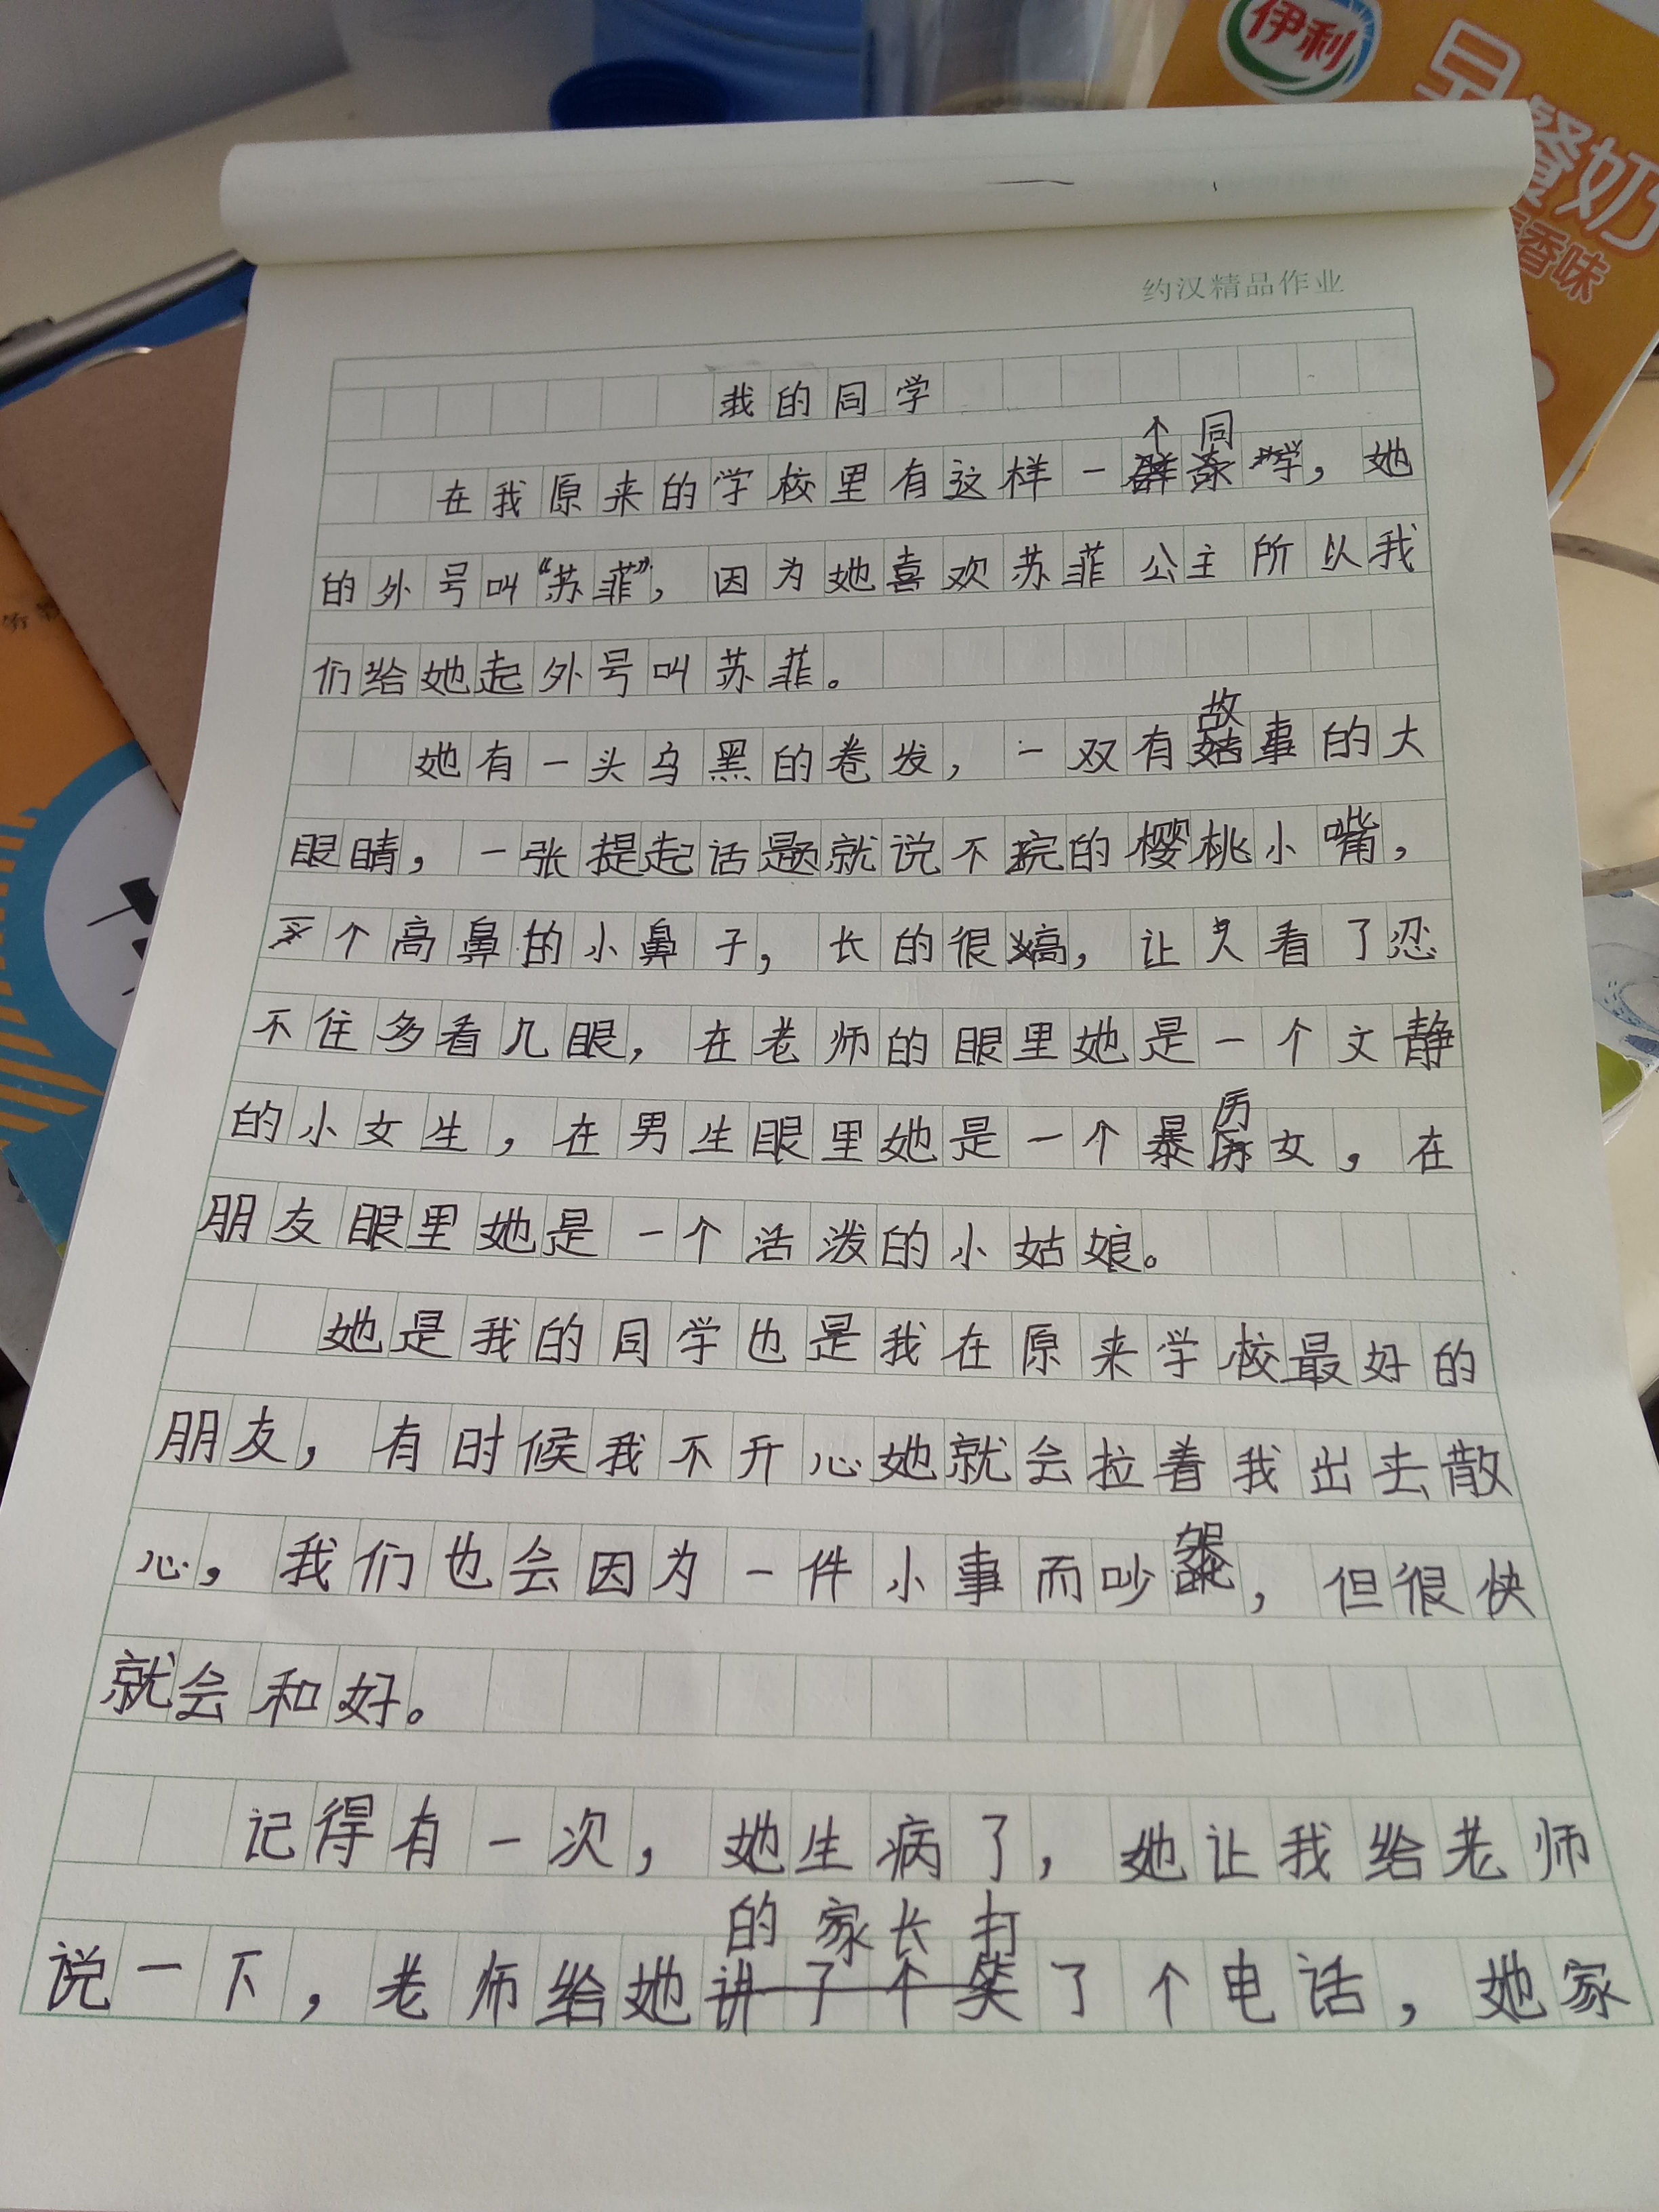 伊利
早餐奶
香味
约汉精品作业
我的同学
在我原来的学校里有这样一个同学，她
的外号叫“苏菲”，因为她喜欢苏菲公主所以我
们给她起外号叫苏菲。
她有一头乌黑的卷发，一双有故事的大
眼睛，一张提起话题就说不完的樱桃小嘴，
个高鼻的小鼻子，长的很，让人看了忍
不住多看几眼，在老师的眼里她是一个文静
的小女生，在男生眼里她是一个暴历女，在
朋友眼里她是一个活泼的小姑娘。
她是我的同学也是我在原来学校最好的
朋友，有时候我不开心她就会拉着我出去散
心，我们也会因为一件小事而吵架，但很快
就会和好。
记得有一次，她生病了，她让我给老师
说一下，老师给她的家长打了个电话，她家